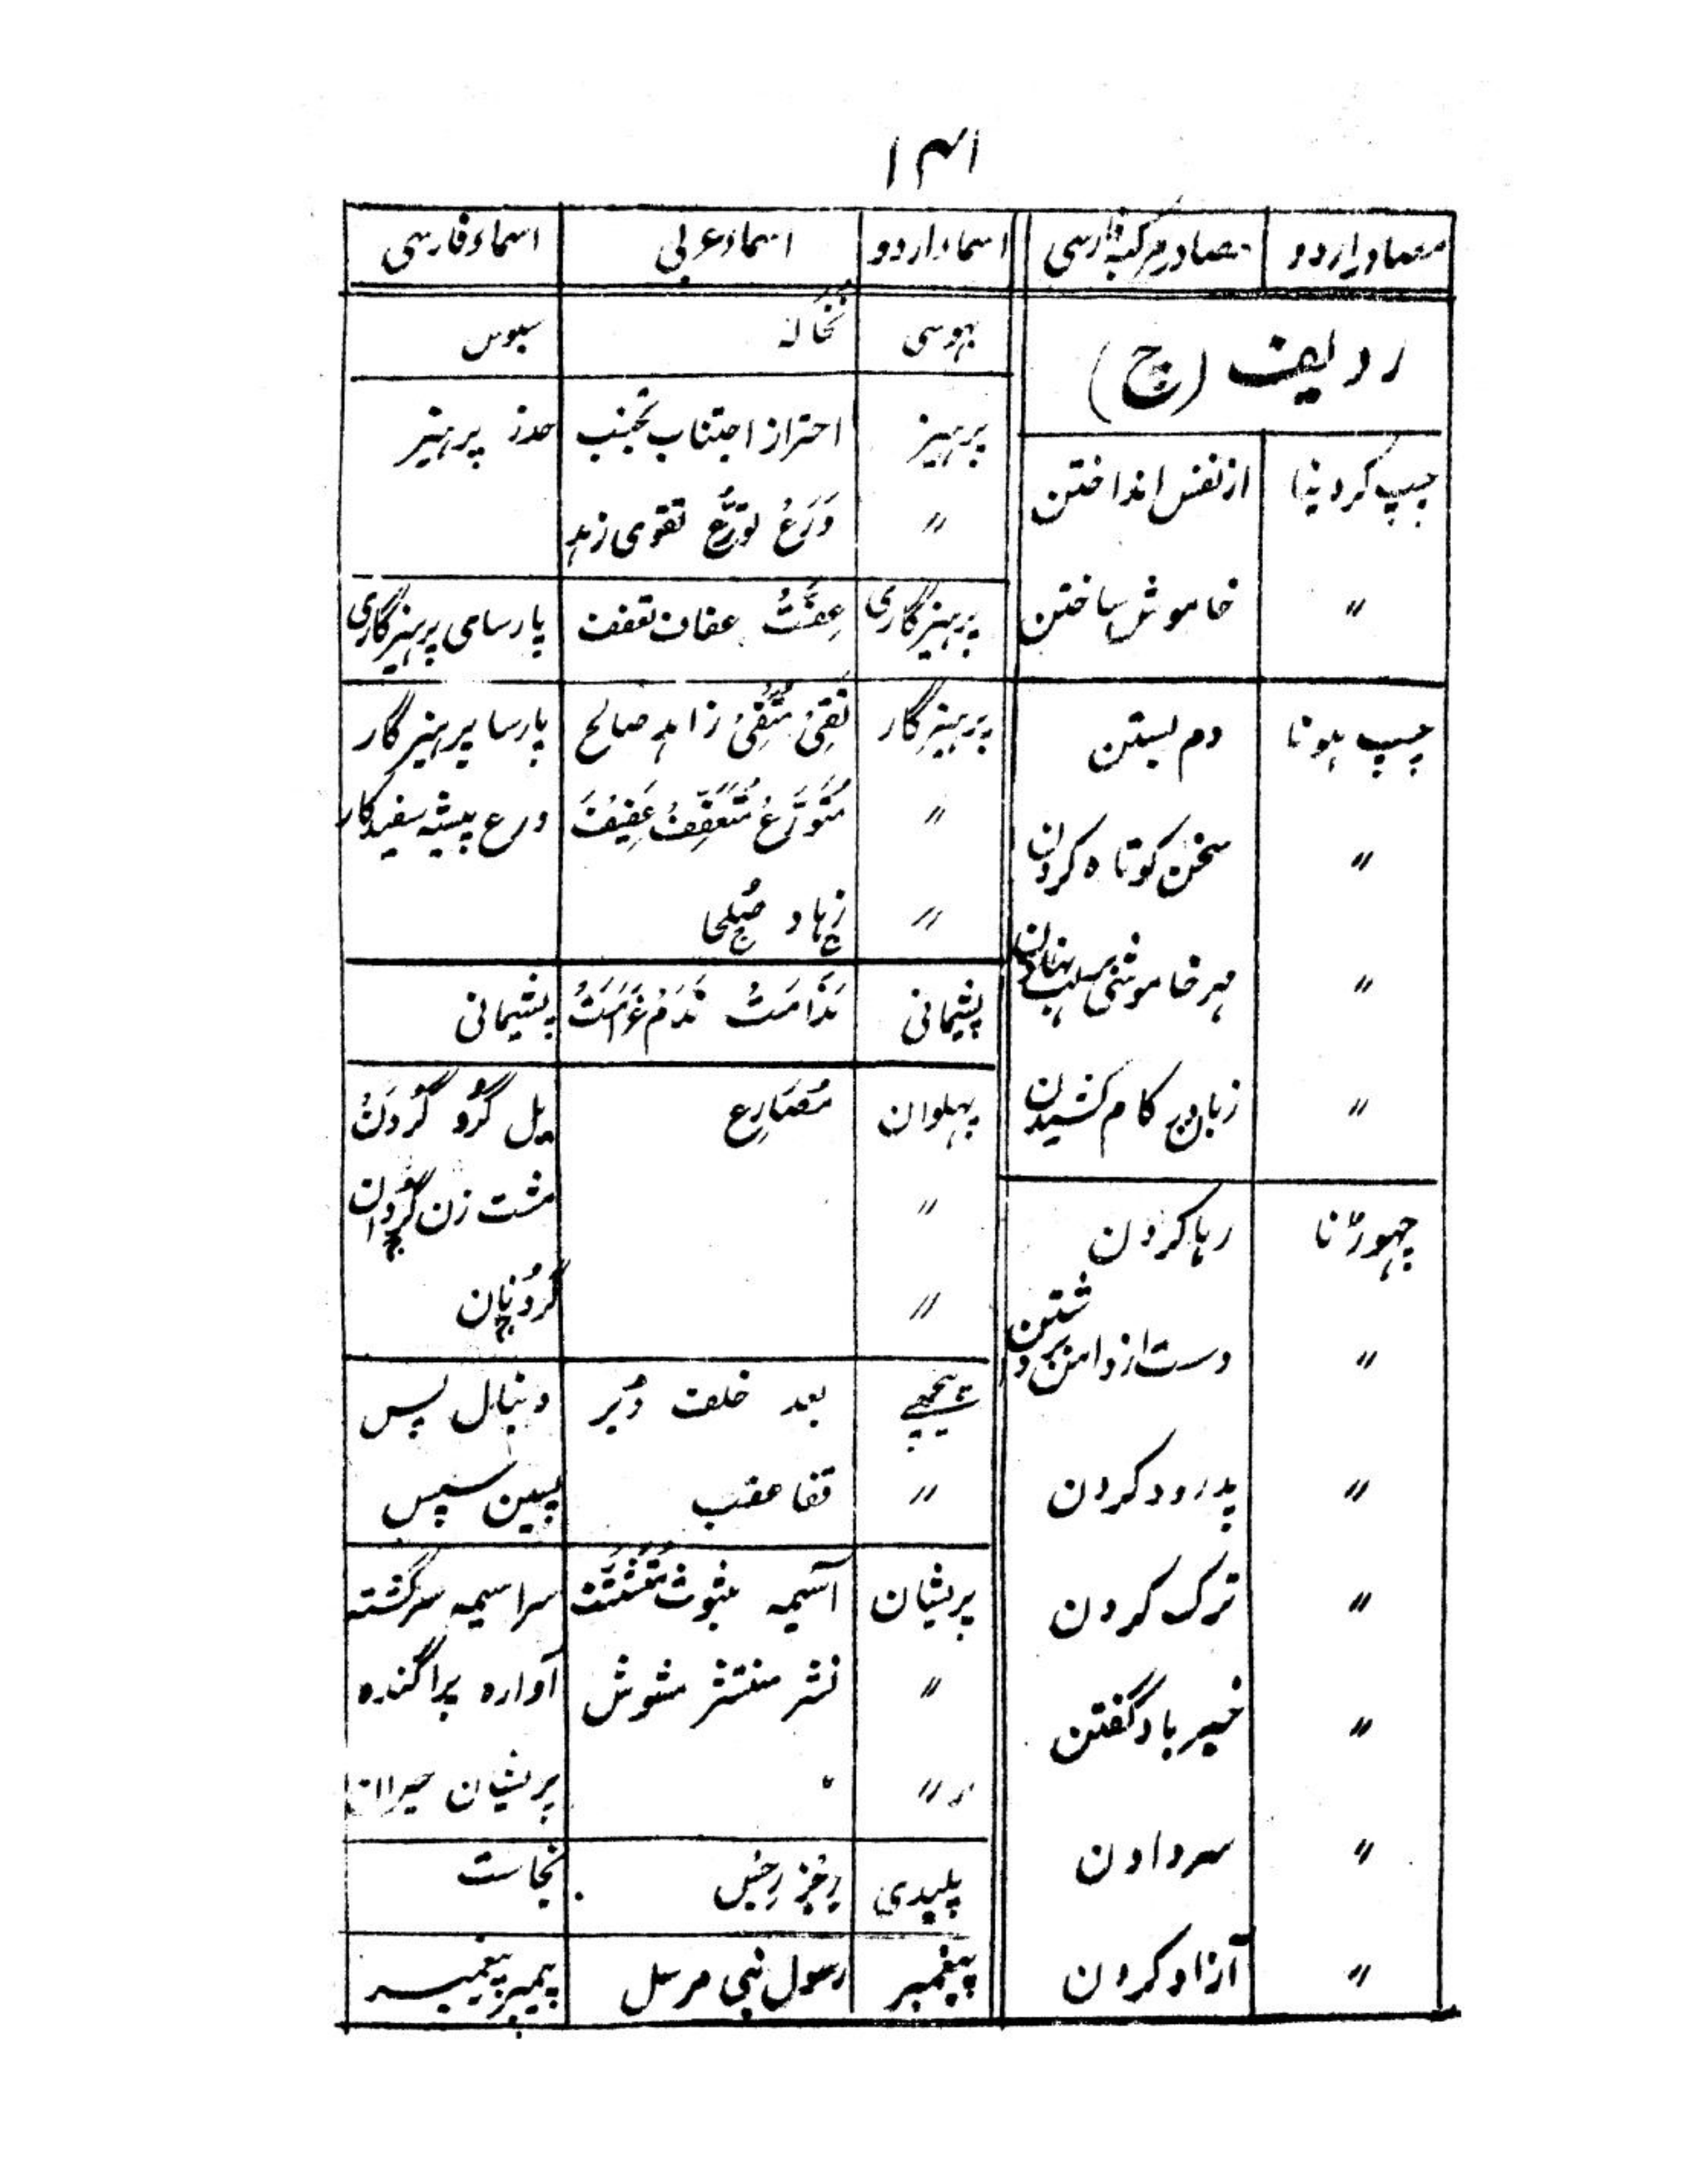 ۱۴۱
مصادر اردو | مصادر مرکبه فارسی
ردیف (چ)
چپ کر دینا | از نفس انداختن
〃 | خاموش ساختن
چپ ہونا | دم بستن
〃 | سخن کوتاه کردن
〃 | مهر خاموشی بر لب نهادن
〃 | زبان در کام کشیدن
چهوڑنا | رها کردن
〃 | دست از دامن برداشتن
〃 | پدرود کردن
〃 | ترک کردن
〃 | خیرباد گفتن
〃 | سر دادن
〃 | آزاد کردن
اسماء اردو | اسماء عربی | اسماء فارسی
بہوسی | نُخَالَہ | سبوس
پرہیز | احتراز اجتناب تجنب | حذر پرہیز
〃 | وَرَعُ تورُّع تقوی زہد
پرہیزگاری | عِفَّتُ عفاف تعفف | پارسای پرہیزگاری
پرہیزگار | تَقِیُ مُتَّقِیُ زاہد صالح | پارسا پرہیزگار
〃 | مُتَوَرِّعُ مُتَعَفِّفُ عَفِیفُ | ورع پیشہ سفیدکار
〃 | زہاد صُلحا
پشیمانی | نَدَامَتُ نَدَمُ غَرَامَتُ | پشیمانی
پہلوان | مُصَارِع | یل گُرُو گُردَکُ
〃 | مشت زن گُردان
〃 | گُردُنان
پیچھے | بعد خلف دُبُر | دنبال پس
〃 | قفا عقب | پسین سپس
پریشان | آسیمہ مبثوث مُتَشَتِّت | سراسیمہ سرگشتہ
〃 | نشر منتشر مشوش | آوارہ پراگندہ
〃 | پریشان حیران
پلیدی | رِجُز رِجُس | نجاست
پیغمبر | رسول نبی مرسل | پیمبر پیغمبر